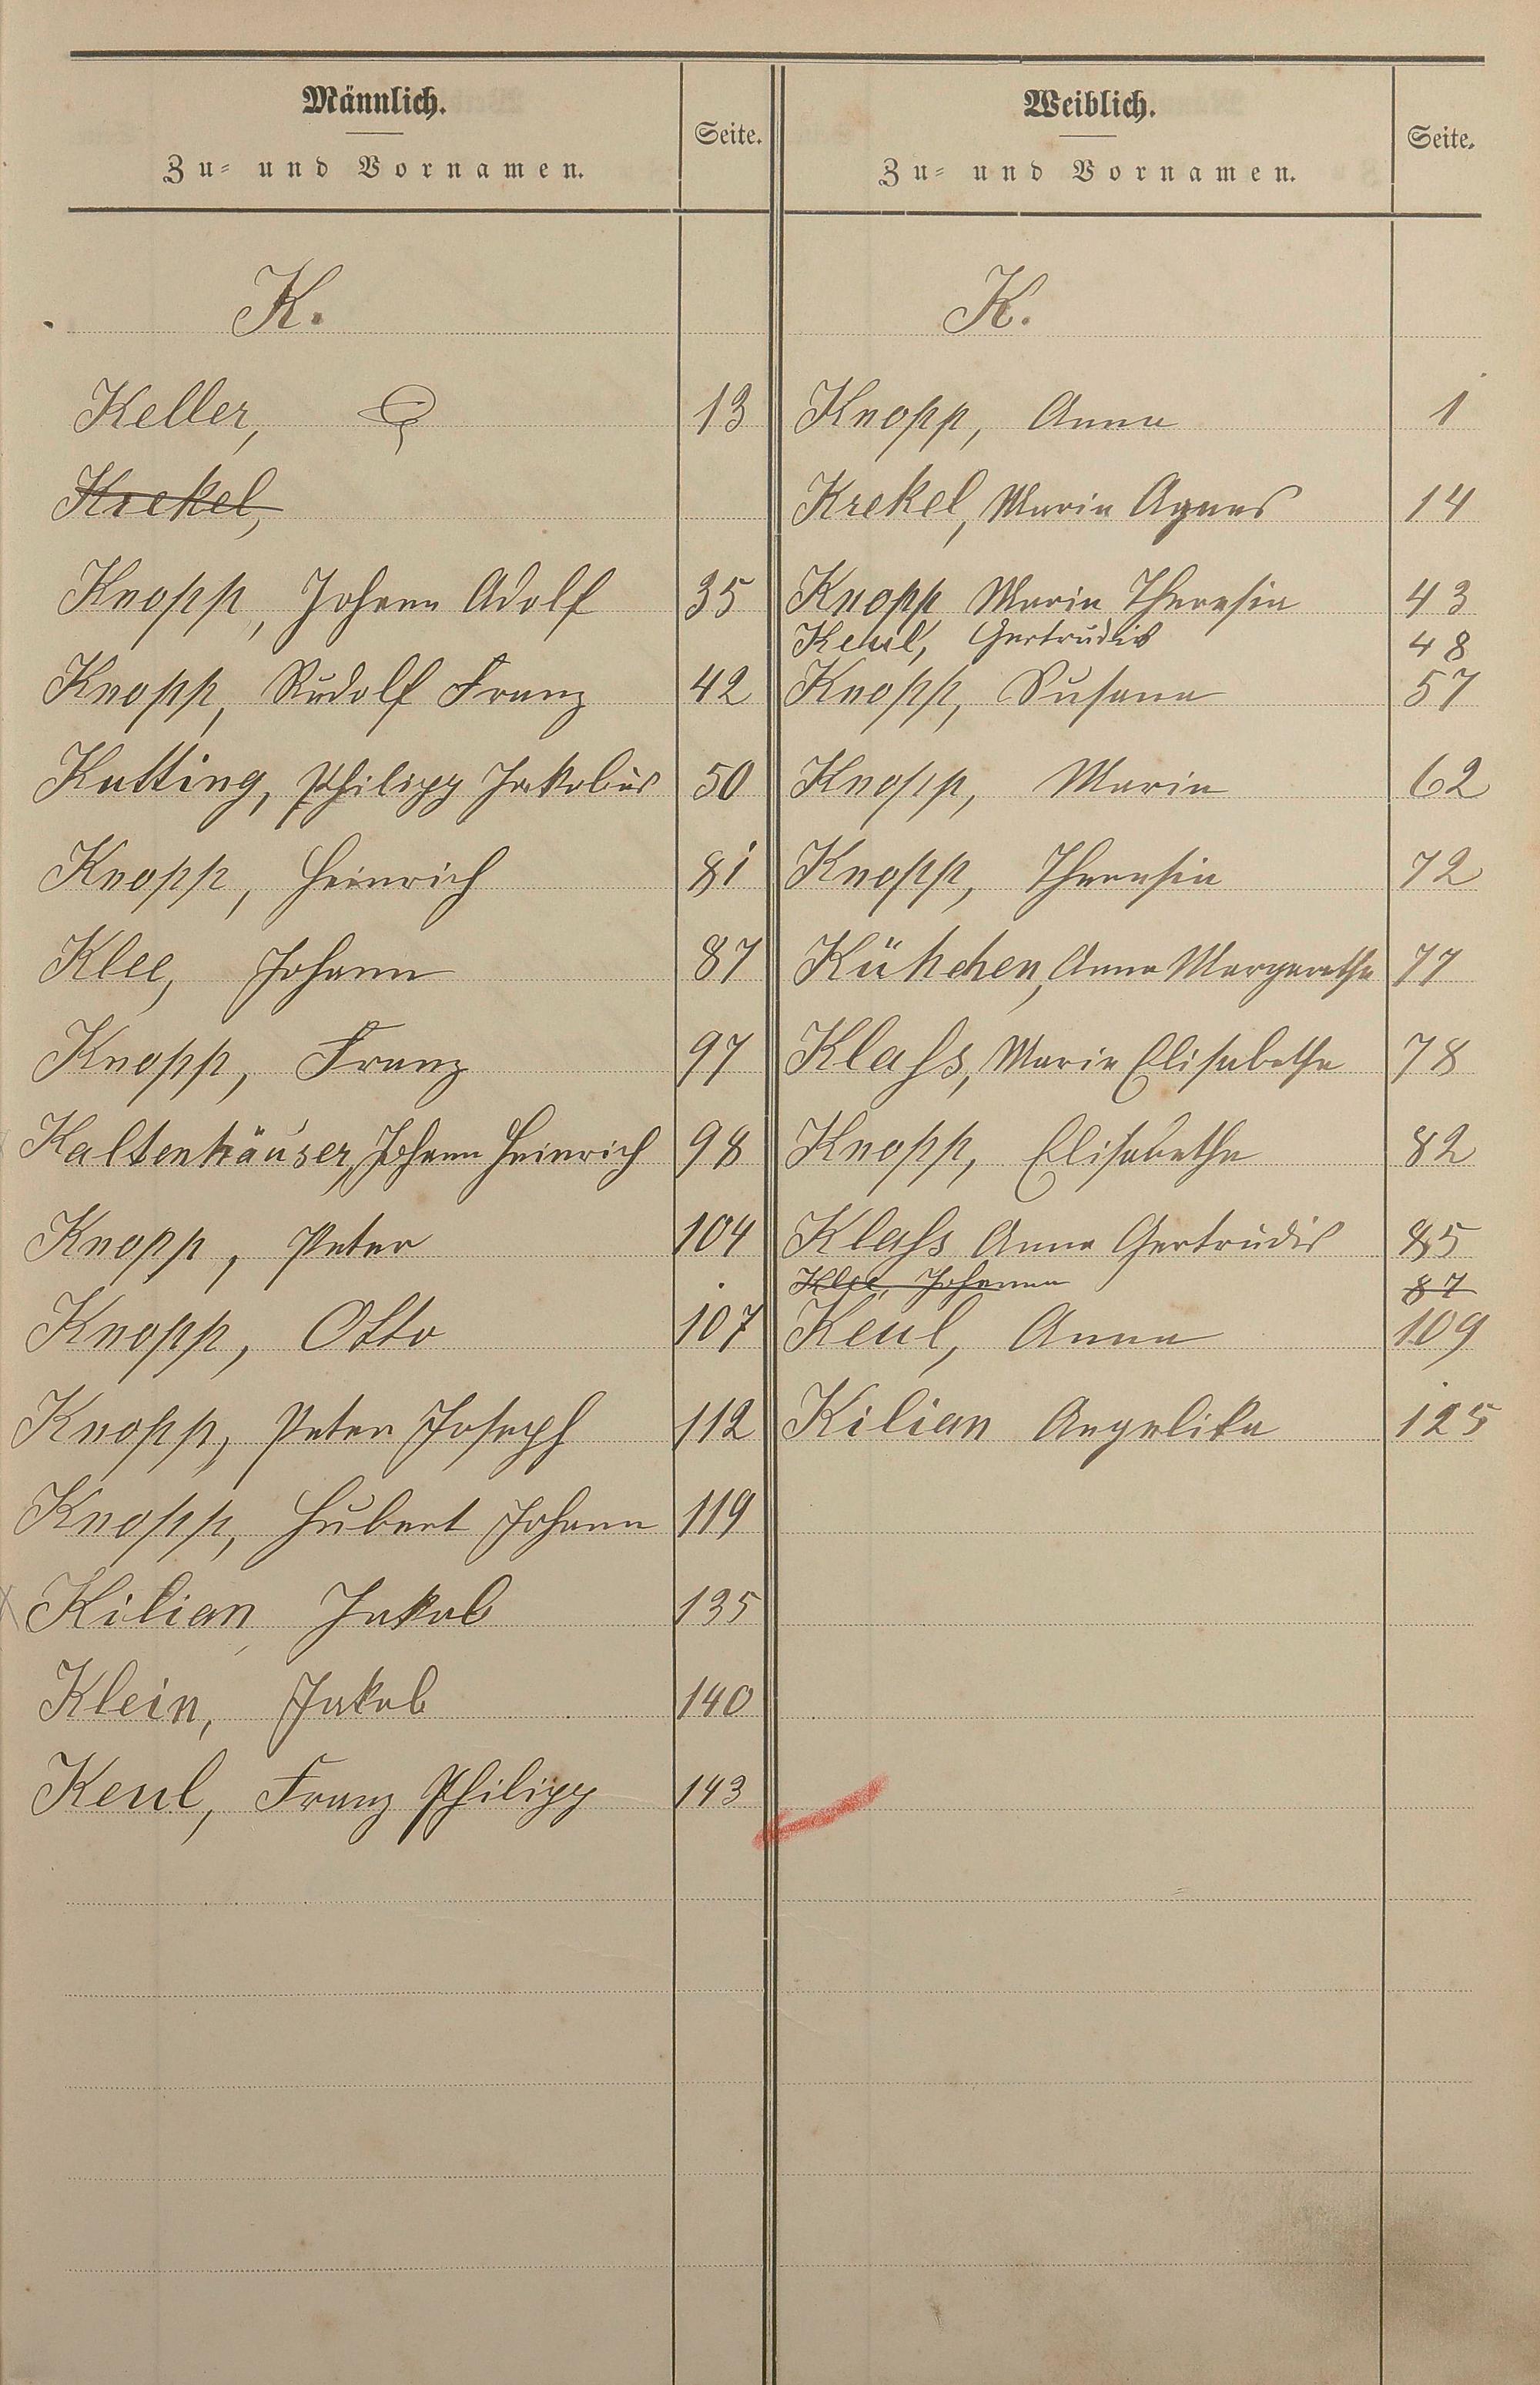 Männlich.
Zu- und Vornamen.
Seite.
K.
Keller, 13
Krekel,
Knopp, Johann Adolf 35
Knopp, Rudolf Franz 42
Kutting, Philipp Jakobus 50
Knopp, Heinrich 81
Klee, Johann 87
Knopp, Franz 97
Kaltenhäuser, Johann Heinrich 98
Knopp, Peter 104
Knopp, Otto 107
Knopp, Peter Joseph 112
Knopp, Hubert Johann 119
Kilian, Jakob 135
Klein, Jakob 140
Keul, Franz Philipp 143
Weiblich.
Zu- und Vornamen.
Seite.
K.
Knopp, Anna 1
Krekel, Maria Agnes 14
Knopp Maria Theresia 43
Keul, Gertrudis 48
Knopp, Susana 57
Knopp, Maria 62
Knopp, Theresia 72
Kühchen, Anna Margaretha 77
Klaß, Maria Elisabetha 78
Knopp, Elisabetha 82
Klaß Anna Gertrudis 85
Klee, Johanna 87
Keul, Anna 109
Kilian Angelika 125